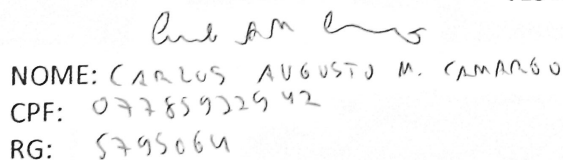 NOME: CARLOS AUGUSTO M. CAMARGO
CPF: 07785922942
RG: 5795064